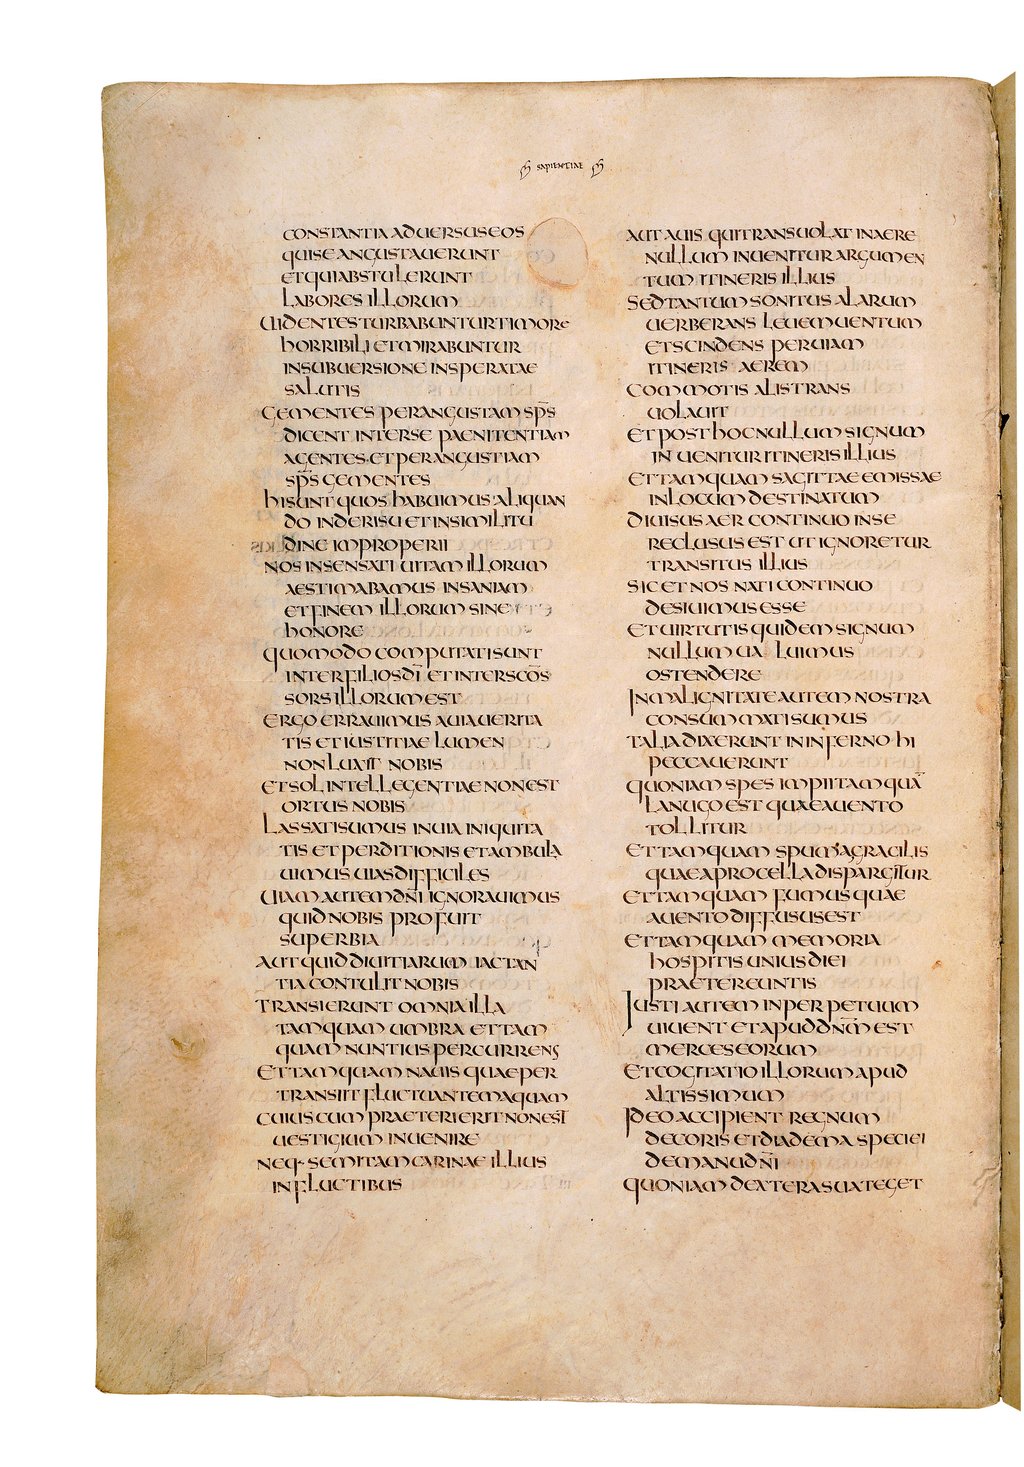 SAPIENTIAE
CONSTANTIA ADUERSUS EOS
QUI SE ANGUSTAUERUNT
ET QUI ABSTULERUNT
LABORES ILLORUM
UIDENTES TURBABUNTUR TIMORE
HORRIBILI ET MIRABUNTUR
IN SUBUERSIONE INSPERATAE
SALUTIS
GEMENTES PER ANGUSTAM SPS̄
DICENT INTER SE PAENITENTIAM
AGENTES·ET PER ANGUSTIAM
SPS̄ GEMENTES
HI SUNT QUOS HABUIMUS ALIQUAN
DO IN DERISU ET IN SIMILITU
DINE IMPROPERII
NOS INSENSATI UITAM ILLORUM
AESTIMABAMUS INSANIAM
ET FINEM ILLORUM SINE
HONORE
QUOMODO COMPUTATI SUNT
INTER FILIOS DĪ ET INTER SCŌS
SORS ILLORUM EST
ERGO ERRAUIMUS A UIA UERITA
TIS ET IUSTITIAE LUMEN
NON LUXIT NOBIS
ET SOL INTELLEGENTIAE NON EST
ORTUS NOBIS
LASSATI SUMUS IN UIA INIQUITA
TIS ET PERDITIONIS ET AMBULA
UIMUS UIAS DIFFICILES
UIAM AUTEM DN̄I IGNORAUIMUS
QUID NOBIS PROFUIT
SUPERBIA
AUT QUID DIUITIARUM IACTAN
TIA CONTULIT NOBIS
TRANSIERUNT OMNIA ILLA
TAMQUAM UMBRA ET TAM
QUAM NUNTIUS PERCURRENS
ET TAMQUAM NAUIS QUAE PER
TRANSIIT FLUCTUANTEM AQUAM
CUIUS CUM PRAETERIERIT NON EST
UESTIGIUM INUENIRE
NEQ· SEMITAM CARINAE ILLIUS
IN FLUCTIBUS
AUT AUIS QUI TRANSUOLAT IN AERE
NULLUM INUENITUR ARGUMEN
TUM ITINERIS ILLIUS
SED TANTUM SONITUS ALARUM
UERBERANS LEUEM UENTUM
ET SCINDENS PER UIAM
ITINERIS AEREM
COMMOTIS ALIS TRANS
UOLAUIT
ET POST HOC NULLUM SIGNUM
INUENITUR ITINERIS ILLIUS
ET TAMQUAM SAGITTAE EMISSAE
IN LOCUM DESTINATUM
DIUISUS AER CONTINUO IN SE
RECLUSUS EST UT IGNORETUR
TRANSITUS ILLIUS
SIC ET NOS NATI CONTINUO
DESIUIMUS ESSE
ET UIRTUTIS QUIDEM SIGNUM
NULLUM UALUIMUS
OSTENDERE
IN MALIGNITATE AUTEM NOSTRA
CONSUMMATI SUMUS
TALIA DIXERUNT IN INFERNO HI
PECCAUERUNT
QUONIAM SPES IMPII TAMQUĀ
LANUGO EST QUAE A UENTO
TOLLITUR
ET TAMQUAM SPUMA GRACILIS
QUAE A PROCELLA DISPARGITUR
ET TAMQUAM FUMUS QUAE
A UENTO DIFFUSUS EST
ET TAMQUAM MEMORIA
HOSPITIS UNIUS DIEI
PRAETEREUNTIS
IUSTI AUTEM IN PERPETUUM
UIUENT ET APUD DN̄M EST
MERCES EORUM
ET COGITATIO ILLORUM APUD
ALTISSIMUM
IDEO ACCIPIENT REGNUM
DECORIS ET DIADEMA SPECIEI
DE MANU DN̄I
QUONIAM DEXTERA SUA TEGET